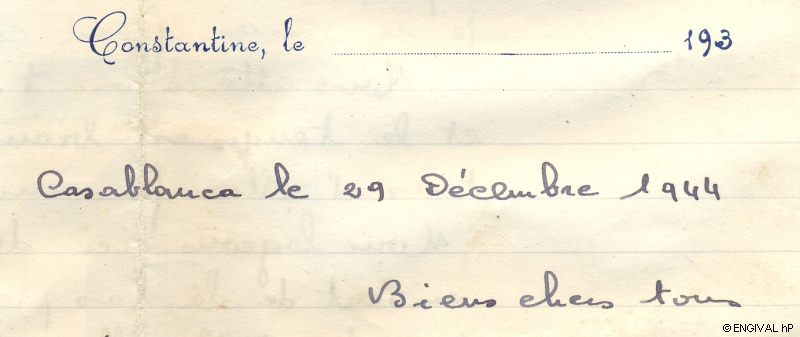 Constantine, le 193
Casablanca le 29 Décembre 1944
Biens chers tous
© ENGIVAL hP